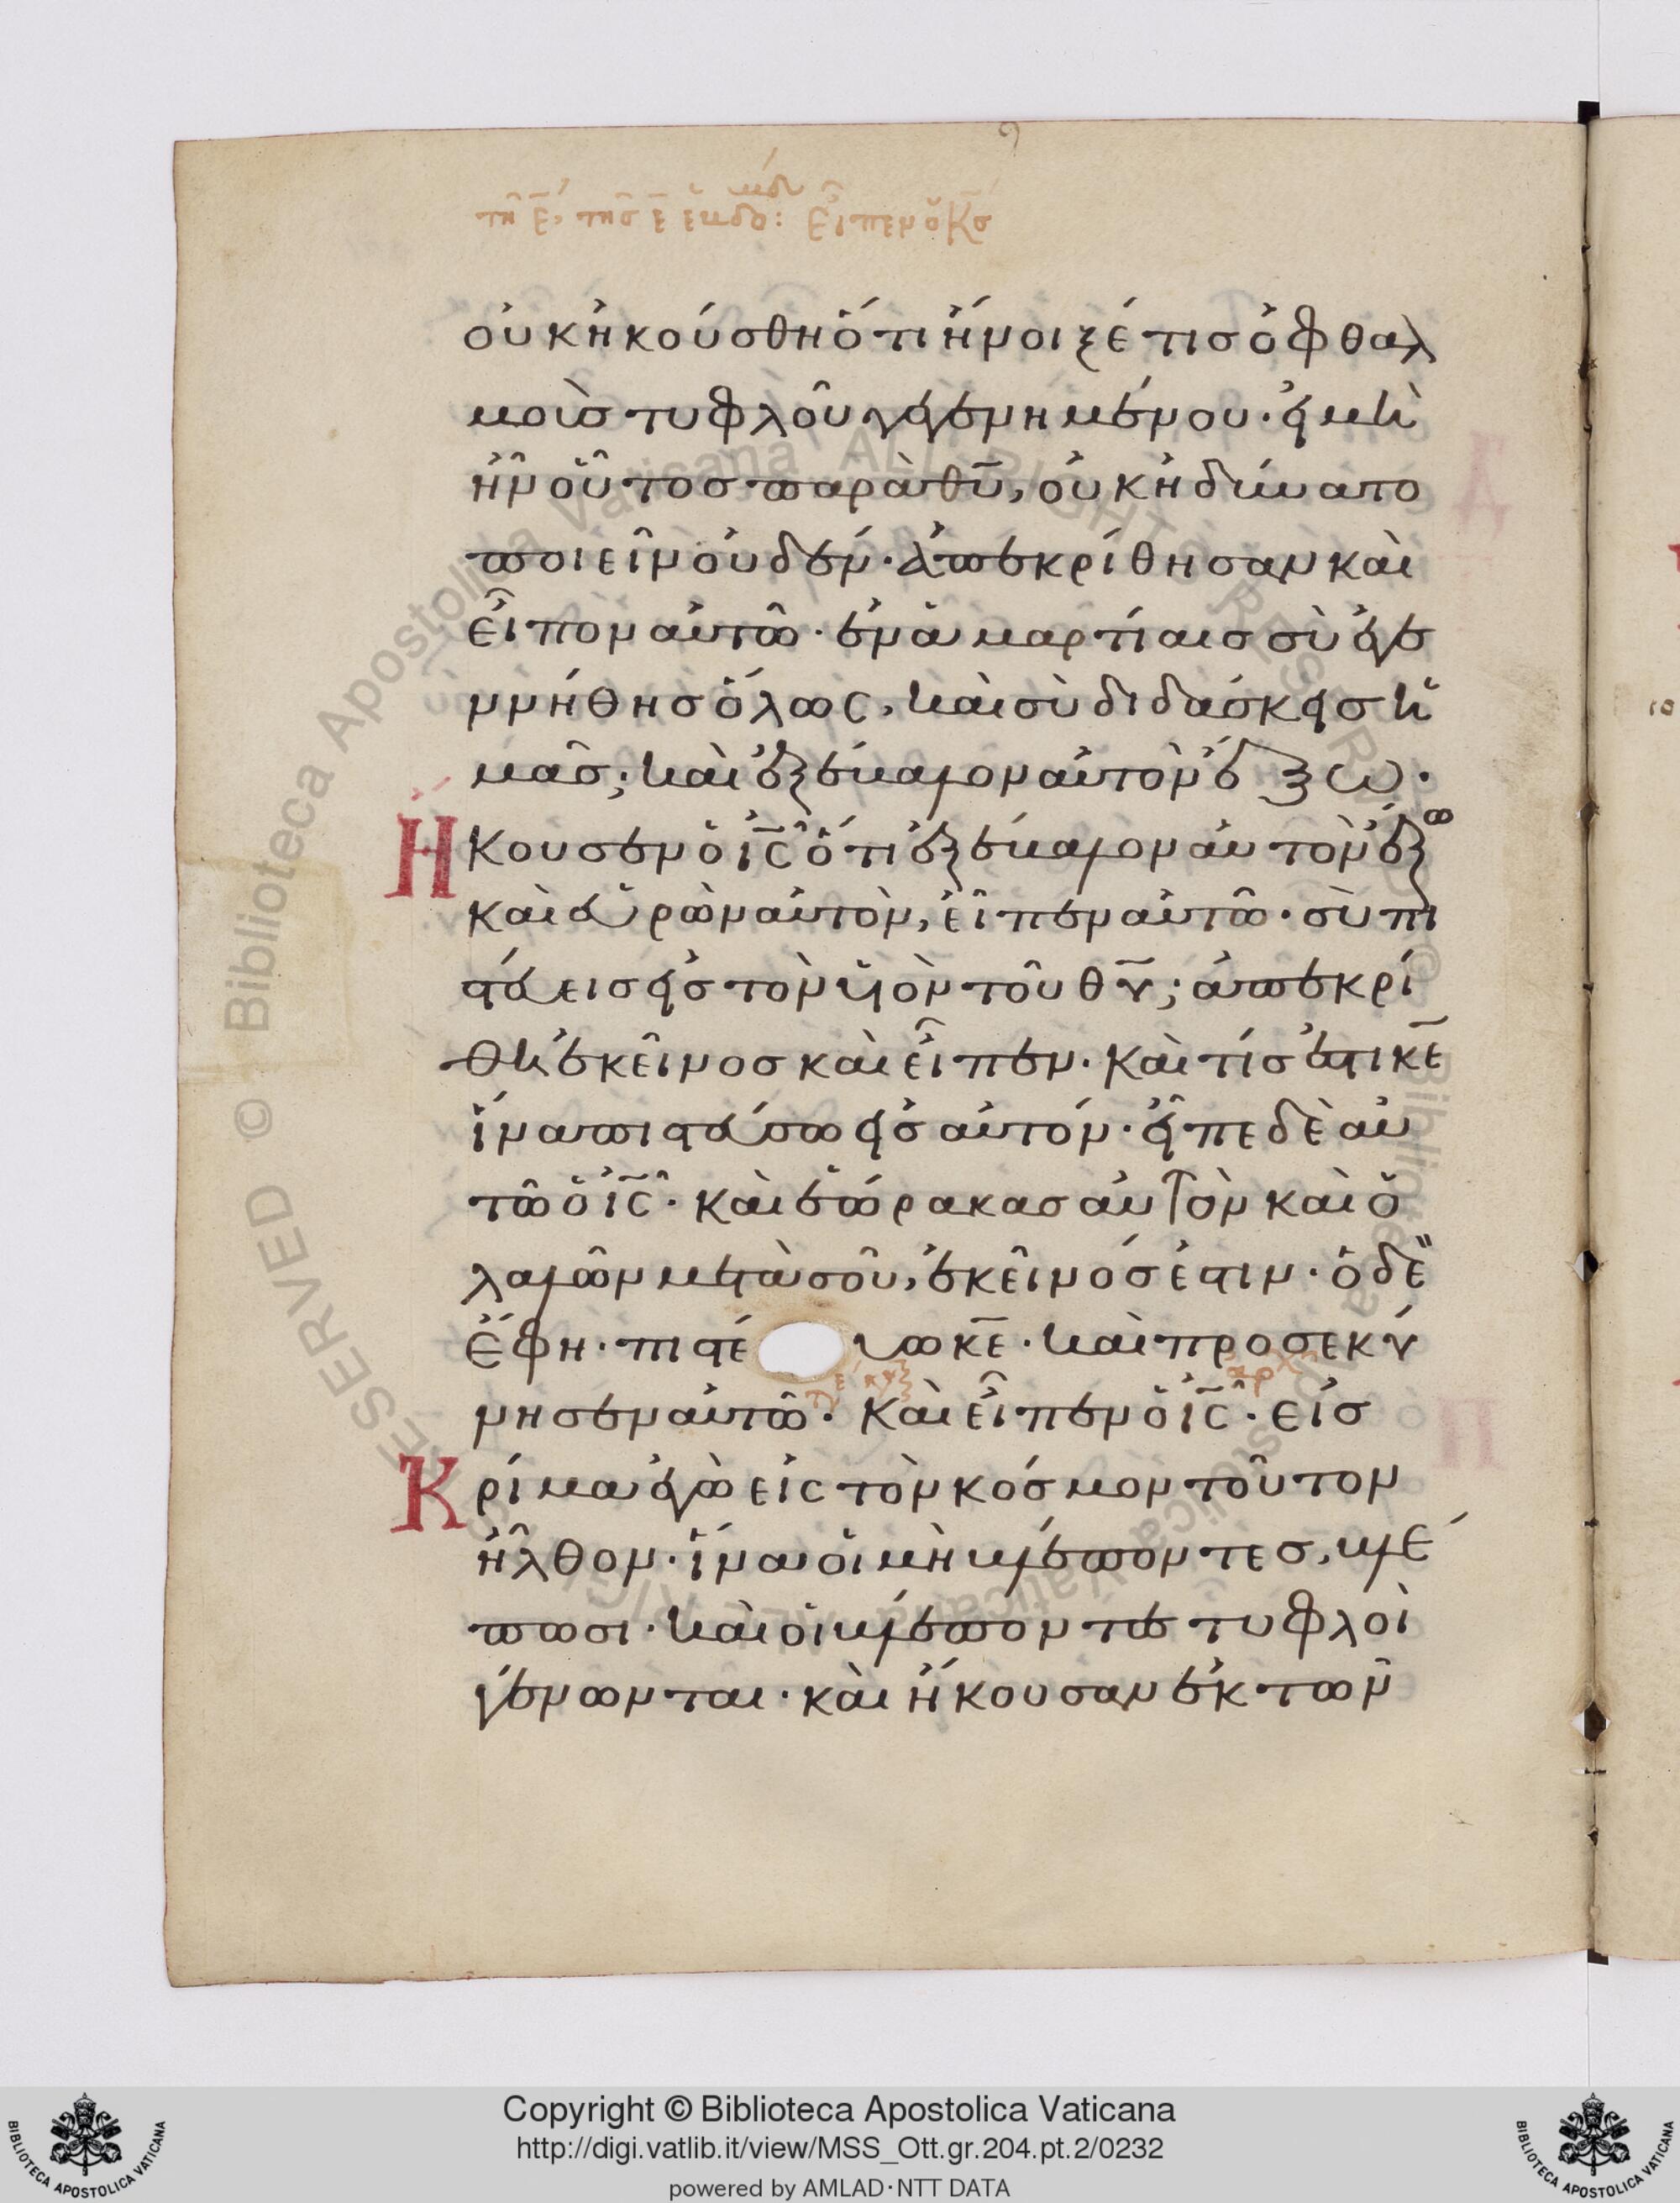 οὐκ ἠκούσθη ὅτι ἤνοιξέ τις ὀφθαλ
μοὺς τυφλοῦ γεγενημένου· εἰ μὴ
ἦν οὗτος παρὰ θ̅υ̅, οὐκ ἠδύνατο
ποιεῖν οὐδέν· ἀπεκρίθησαν καὶ
εἶπον αὐτῶ· ἐν ἁμαρτίαις σὺ ἐγε
ννήθης ὅλως, καὶ σὺ διδάσκεις ἡ
μᾶς; καὶ ἐξέβαλον αὐτὸν ἔξω·
Ἤκουσεν ὁ ι̅ς̅ ὅτι ἐξέβαλον αὐτὸν ἔξω
καὶ εὑρὼν αὐτὸν, εἶπεν αὐτῶ· σὺ πι
στεύεις εἰς τὸν υἱὸν τοῦ θ̅υ̅; ἀπεκρί
θη ἐκεῖνος καὶ εἶπεν· καὶ τίς ἐστι κ̅ε̅
ἵνα πιστεύσω εἰς αὐτόν· εἶπε δὲ αὐ
τῶ ὁ ι̅ς̅· καὶ ἑώρακας αὐτὸν καὶ ὁ
λαλῶν μετὰ σοῦ, ἐκεῖνός ἐστιν· ὁ δὲ
ἔφη· πιστεύω κ̅ε̅· καὶ προσεκύ
νησεν αὐτῶ· Καὶ εἶπεν ὁ ι̅ς̅· εἰς
Κρίμα ἐγὼ εἰς τὸν κόσμον τοῦτον
ἦλθον· ἵνα οἱ μὴ βλέποντες, βλέ
πωσι· καὶ οἱ βλέποντες τυφλοὶ
γένωνται· καὶ ἤκουσαν ἐκ τῶν
© Biblioteca Apostolica Vaticana ALL RIGHTS RESERVED
Copyright © Biblioteca Apostolica Vaticana
http://digi.vatlib.it/view/MSS_Ott.gr.204.pt.2/0232
powered by AMLAD·NTT DATA
BIBLIOTECA APOSTOLICA VATICANA
BIBLIOTECA APOSTOLICA VATICANA